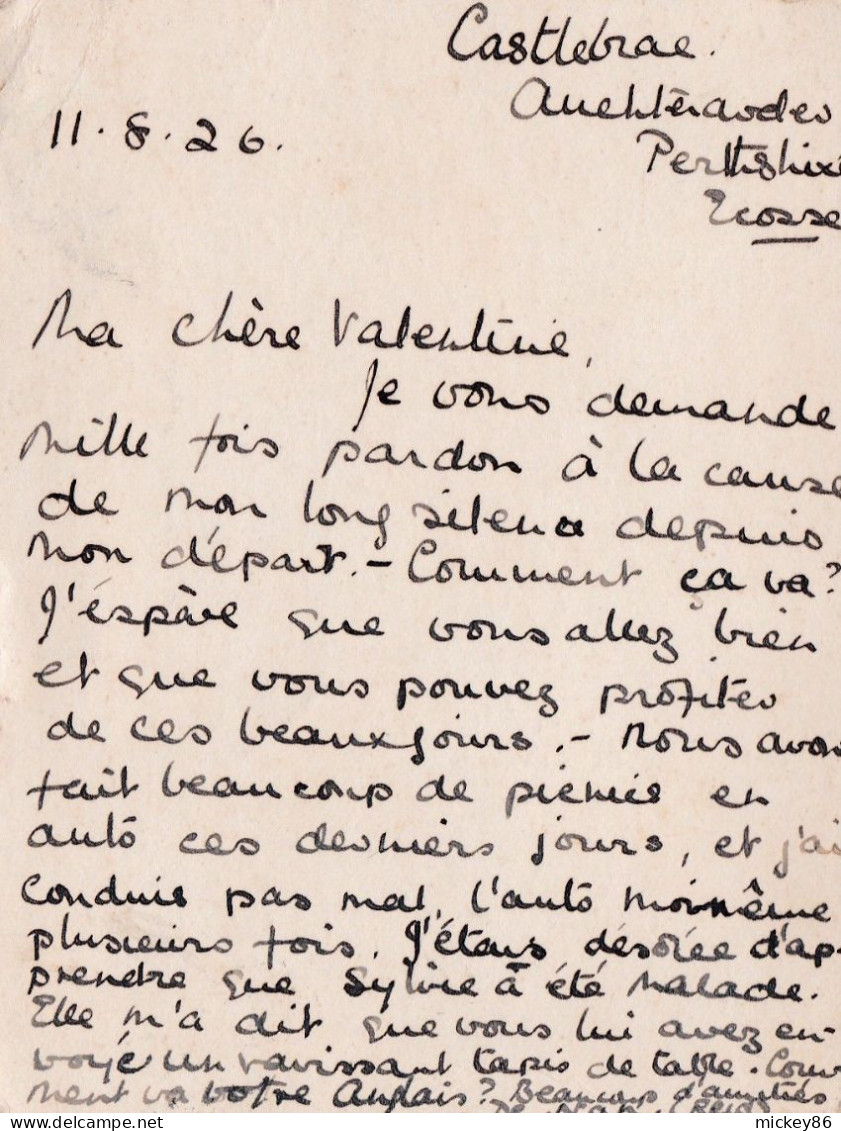 Castlebrae.
Auchterarder
Perthshire
11.8.26.
Ecosse
Ma chère Valentine,
Je vous demande
mille fois pardon à la cause
de mon long silence depuis
mon départ. – Comment ça va?
J'éspère que vous allez bien
et que vous pouvez profiter
de ces beaux jours. – Nous avons
fait beaucoup de piěnics en
autô ces derniers jours, et j'ai
conduis pas mal, l'autô moi même
plusieurs fois. J'étais désolée d'ap-
prendre que Sylvie à été malade.
Elle m'a dit que vous lui avez en-
voyé un ravissant tapis de table. Com-
ment va votre Anglais? Beaucoup d'amitiés
de
mickey86